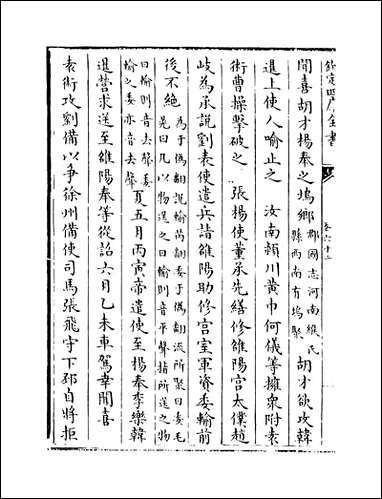 欽定四庫全書
卷六十二
聞喜胡才楊奉之塢鄉
郡國志河南緱氏
縣西南有塢聚
胡才欲攻韓
暹上使人喻止之　汝南潁川黄巾何儀等擁衆附袁
術曹操擊破之　張楊使董承先繕修雒陽宫太僕趙
岐為承説劉表使遣兵詣雒陽助修宫室軍資委輸前
後不絶
為于偽翻説輸芮翻委于偽翻流所聚曰委毛
晃曰凡以物送之曰輸則音平聲指所送之物
曰輸則音去聲委
輸之委亦音去聲
夏五月丙寅帝遣使至楊奉李樂韓
暹營求送至雒陽奉等從詔六月乙未車駕幸聞喜
袁術攻劉備以爭徐州備使司馬張飛守下邳自將拒